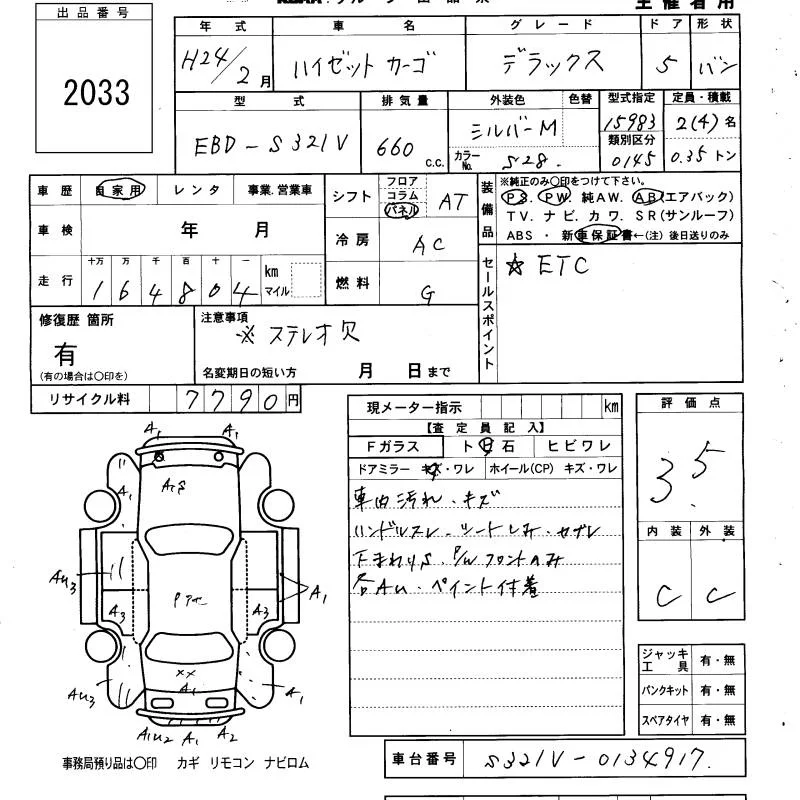 主催者用
出品番号
2033
年式 車名 グレード ドア 形状
H24/2月 ハイゼット カーゴ デラックス 5 バン
型式 排気量 外装色 色替 型式指定 定員・積載
EBD-S321V 660 c.c. シルバーM 15983 2(4)名
カラーNo. S28. 類別区分 0145 0.35トン
車歴 自家用 レンタ 事業.営業車
シフト フロア コラム パネル AT
装備品 ※純正のみ〇印をつけて下さい。
PS. PW. 純AW. AB(エアバック)
TV. ナビ. カワ. SR(サンルーフ)
ABS ・ 新車保証書←(注) 後日送りのみ
車検 年 月
冷房 AC
走行 十万 万 千 百 十 一 km マイル
164804
燃料 G
セールスポイント ☆ ETC
修復歴 箇所
有
(有の場合は〇印を)
注意事項
※ ステレオ欠
名変期日の短い方 月 日まで
リサイクル料 7790円
現メーター指示 km
【査定員記入】
Fガラス ト日石 ヒビワレ
ドアミラー キズ・ワレ ホイール(CP) キズ・ワレ
車内汚れ・キズ
ハンドルスレ、シートしみ・セブレ
下まわりS. P/Wフロントのみ
各AU・ペイント付着
評価点
3.5
内装 外装
C C
A1 A1
A1S
A1
AU3
A3 A3
A1
××
A1
AU3
A1
A1U2 A1 A2
ジャッキ工具 有・無
パンクキット 有・無
スペアタイヤ 有・無
事務局預り品は〇印 カギ リモコン ナビロム
車台番号 S321V-0134917.